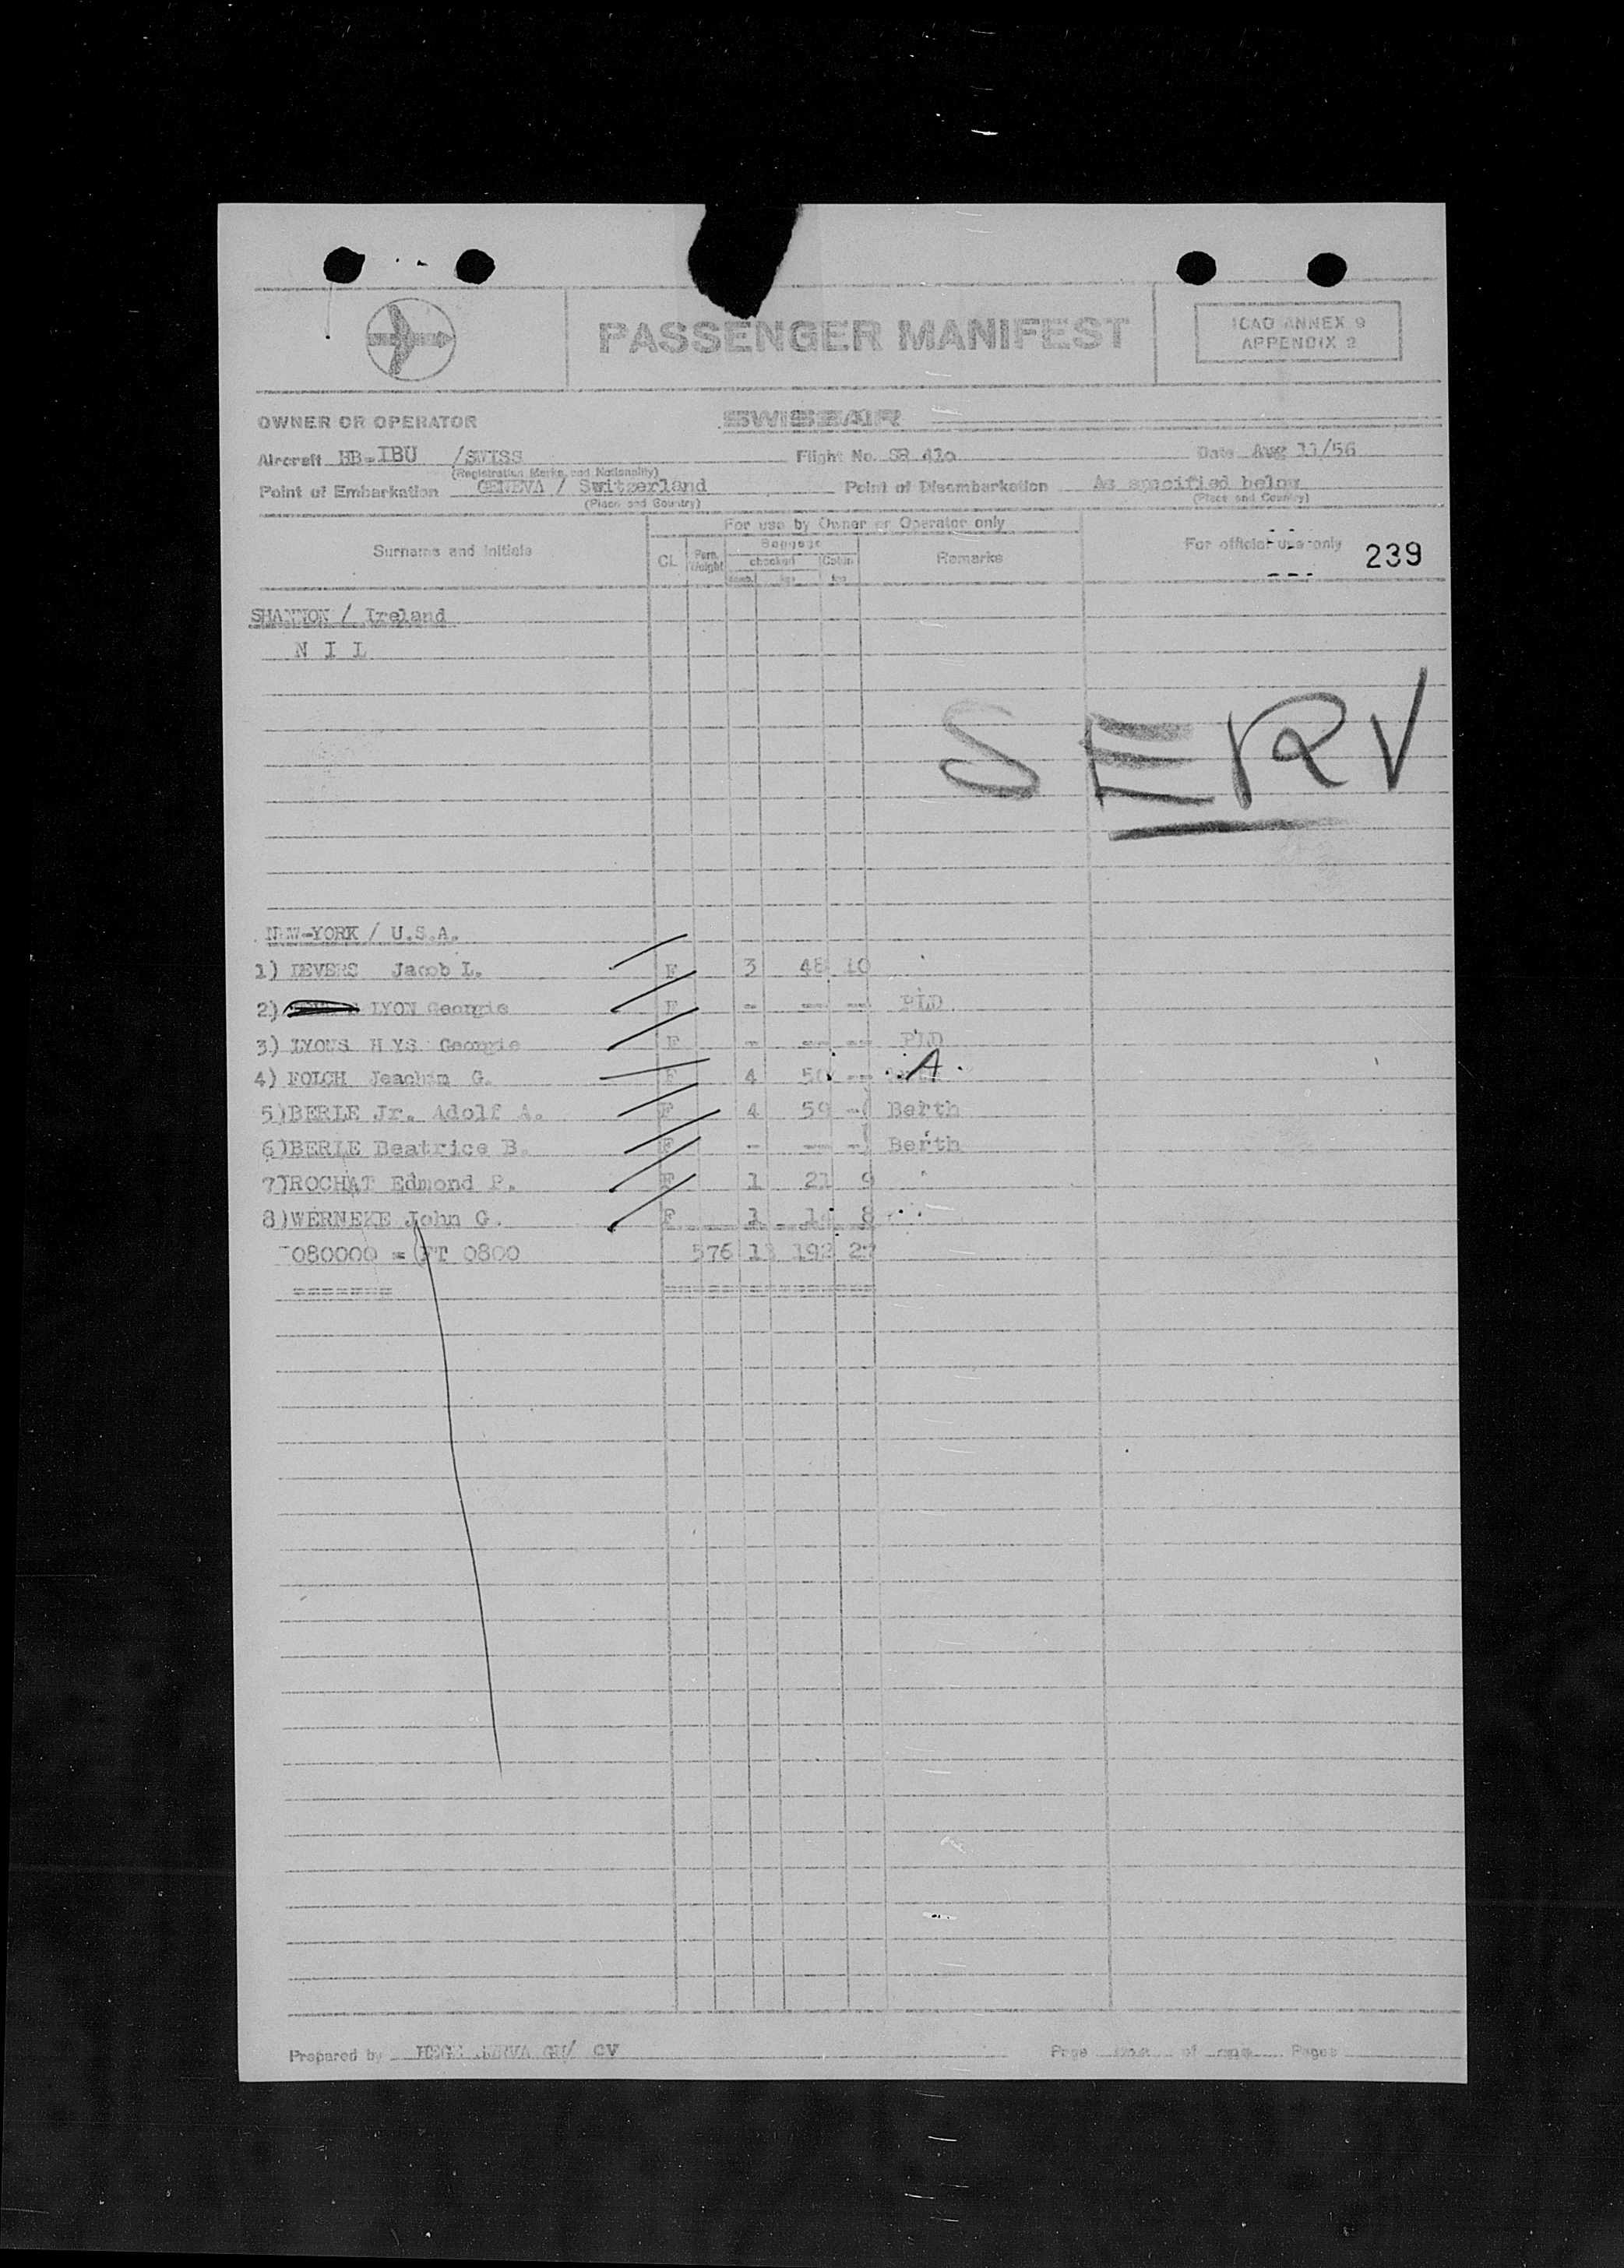 PASSENGER MANIFEST
ICAO ANNEX 9
APPENDIX 2
OWNER OR OPERATOR SWISSAIR
Aircraft HB-IBU /SWISS Flight No. SR Date Aug 11/56
(Registration Marks and Nationality)
Point of Embarkation GENEVA / Switzerland Point of Disembarkation As specified below
(Place and Country) (Place and Country)
For use by Owner or Operator only
Surname and Initials CL Pass. Weight Baggage checked Cabin Remarks For official use only 239
SHANNON / Ireland
N I L
SERV
NEW-YORK / U.S.A.
1) DEVERS Jacob L. F 3 48 10
2) LYON Georgie F - --- -- PLD
3) LYONS HYS Georgie F - --- -- PLD
4) FOLCH Joachim G. F 4 50 -- A.
5) BERLE Jr. Adolf A. F 4 59 - Berth
6) BERLE Beatrice B. F - --- - Berth
7) ROCHAT Edmond P. F 1 21 9
8) WERNEKE John G. F 1 14 8
080000 = FT 0800 576 13 192 27
======= ==============
Prepared by GV Page one of one Pages